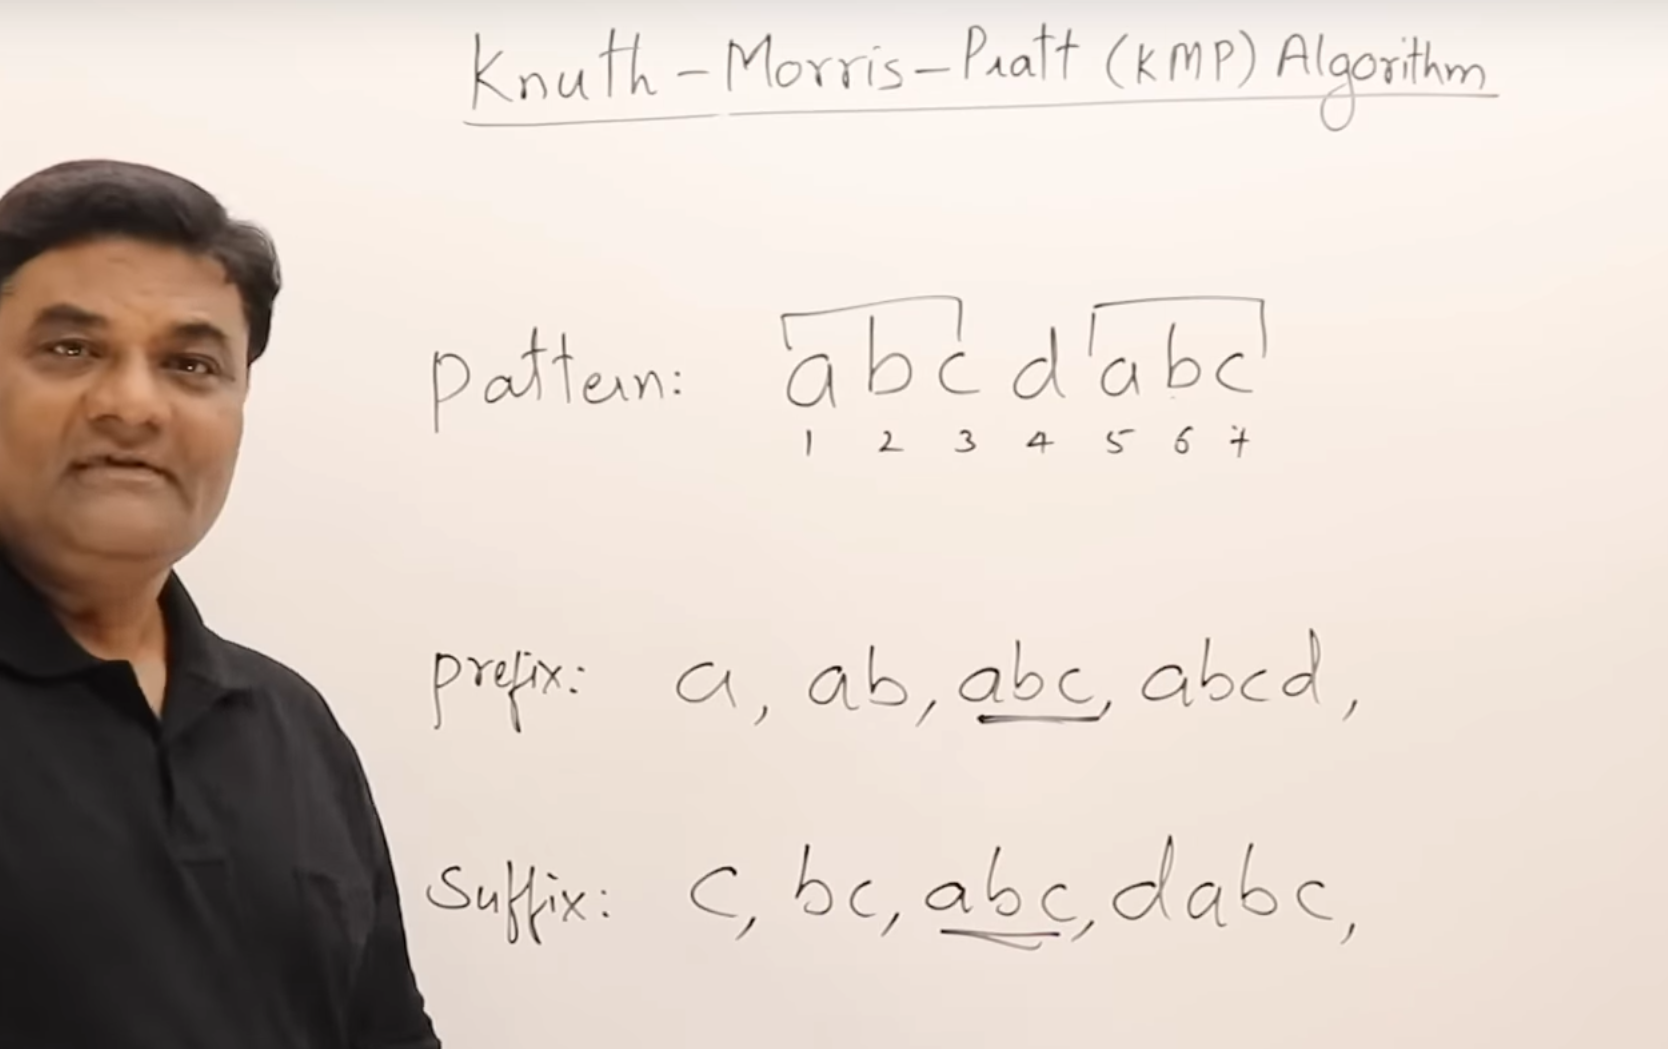 Knuth-Morris-Pratt (KMP) Algorithm
Pattern: a b c d a b c
1 2 3 4 5 6 7
prefix: a, ab, abc, abcd,
suffix: c, bc, abc, dabc,